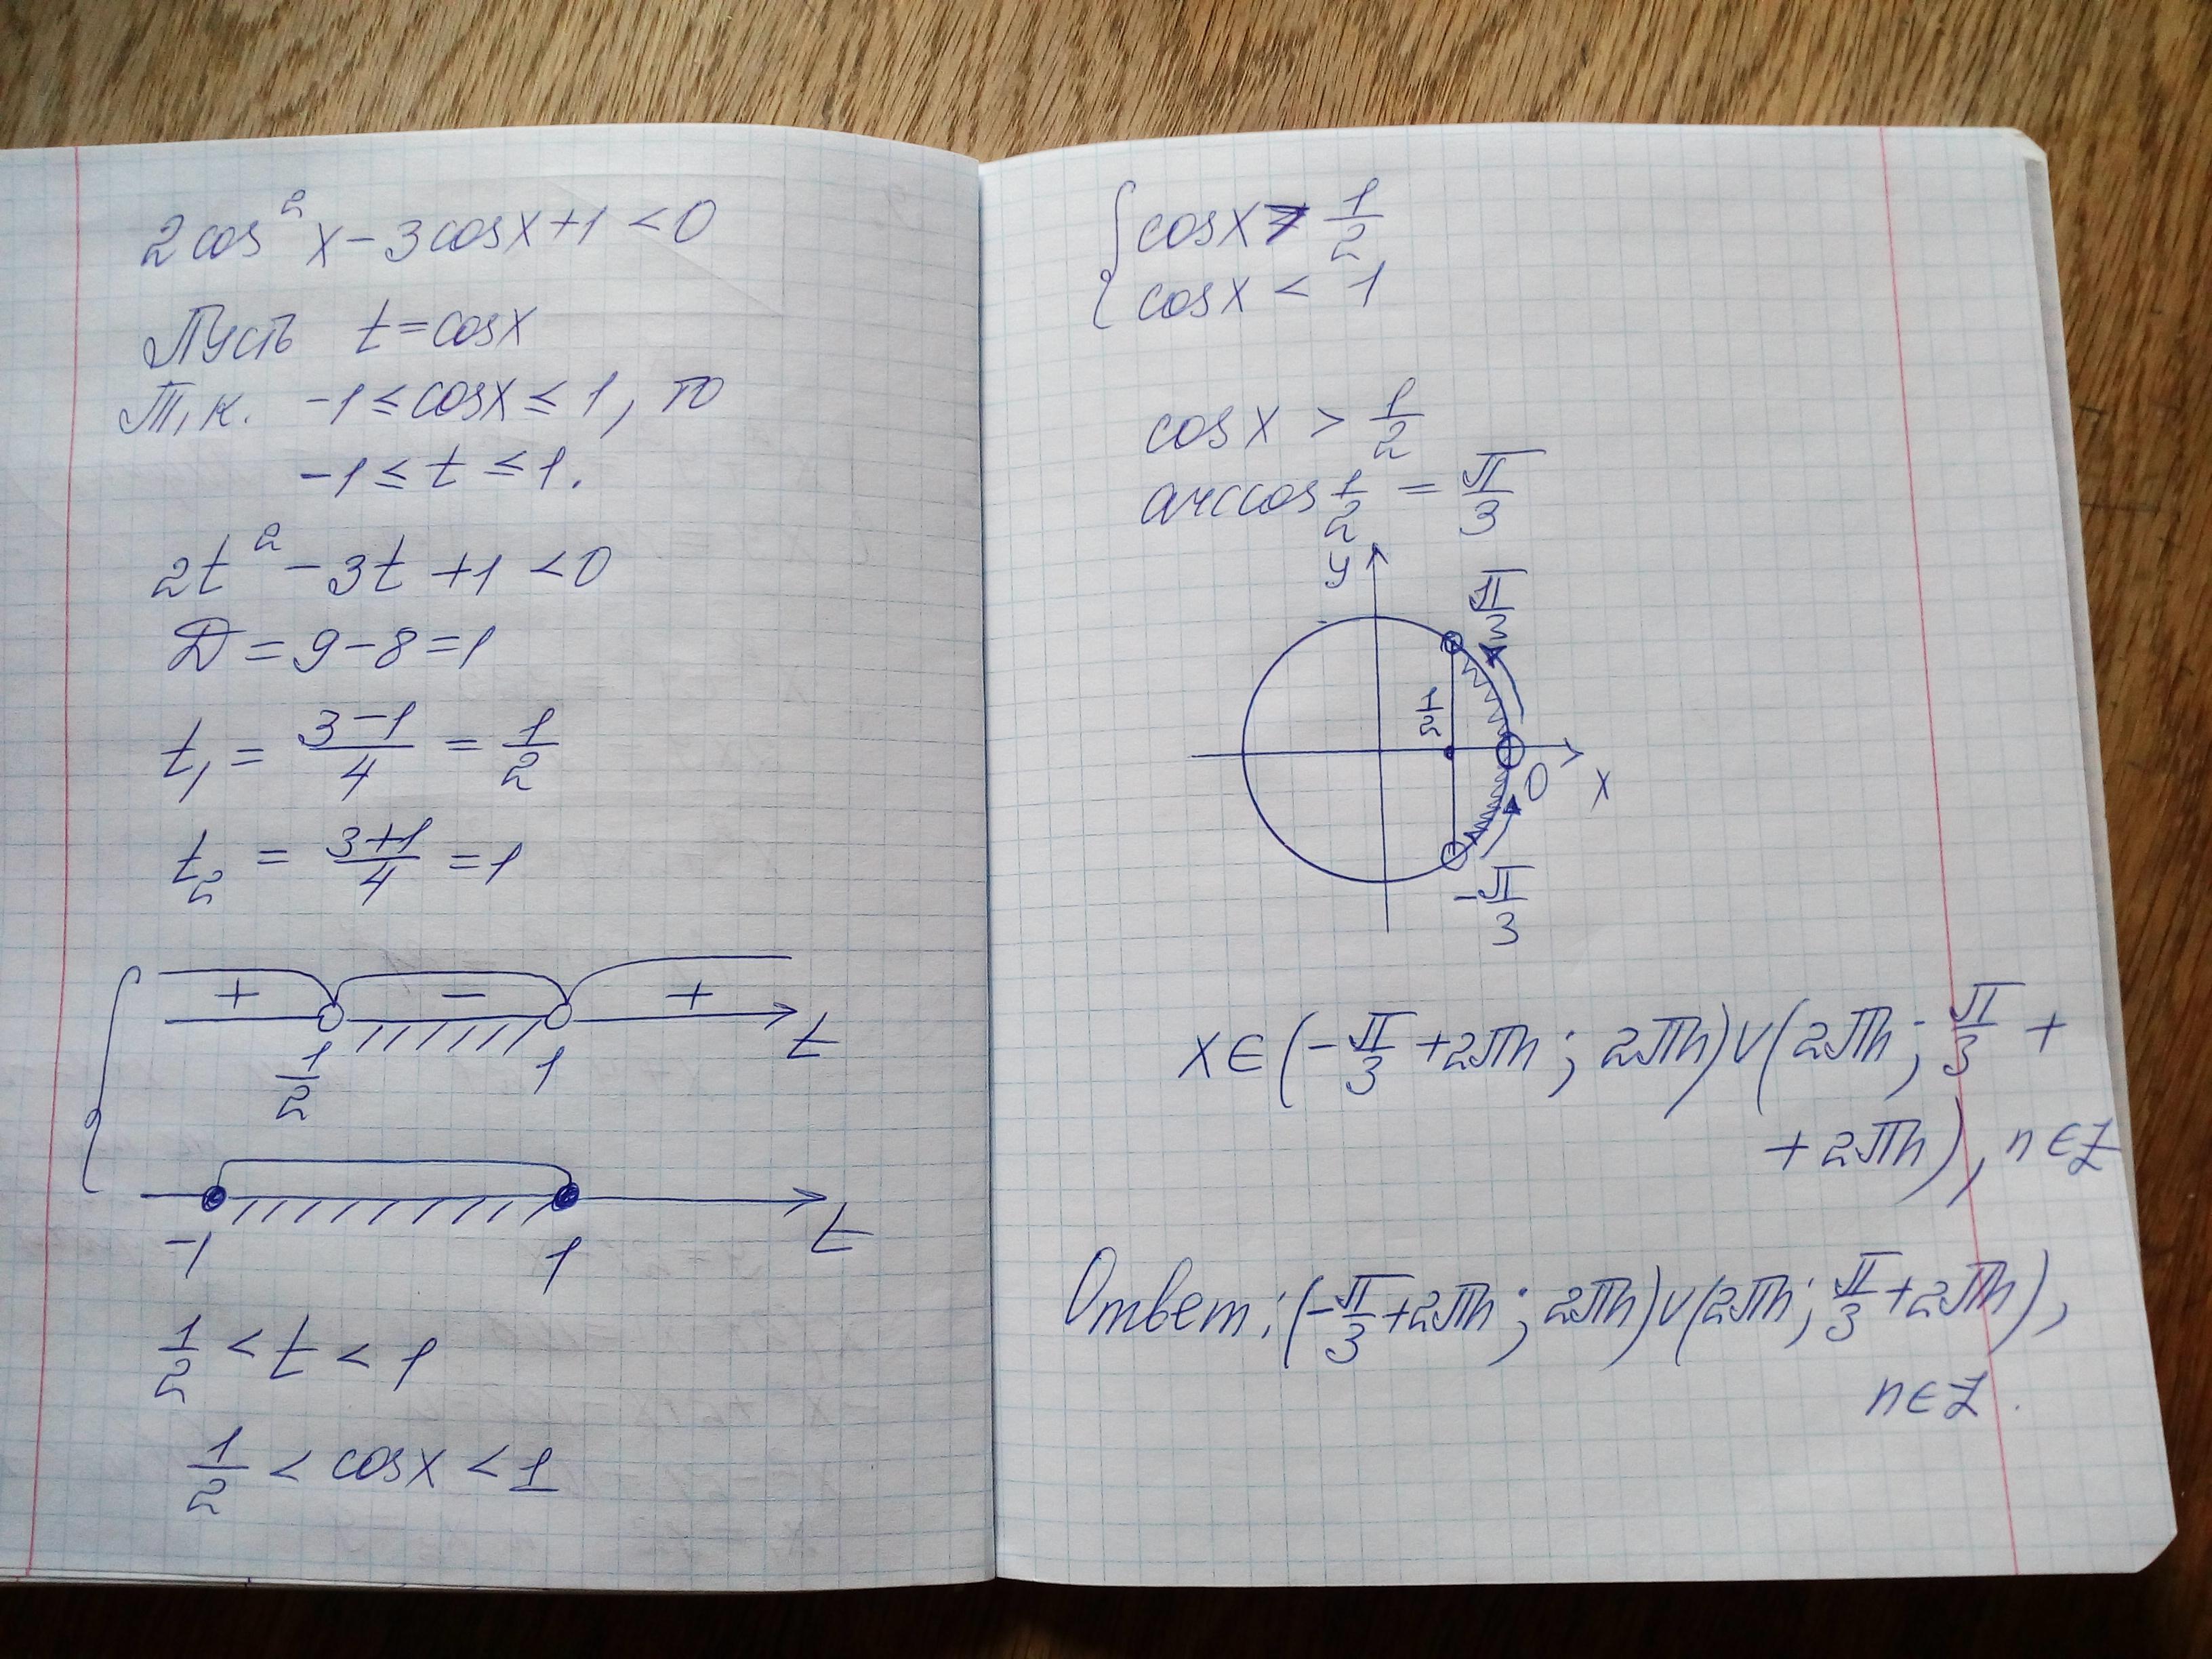 2cos²x - 3cosx + 1 < 0
Пусть t = cosx
Т.к. -1 ≤ cosx ≤ 1, то
-1 ≤ t ≤ 1.
2t² - 3t + 1 < 0
D = 9 - 8 = 1
t₁ = (3-1)/4 = 1/2
t₂ = (3+1)/4 = 1
+ - +
1/2 1 t
-1 1 t
1/2 < t < 1
1/2 < cosx < 1
{ cosx > 1/2
cosx < 1
cosx > 1/2
arccos 1/2 = π/3
y
π/3
1/2
0 x
-π/3
x ∈ (-π/3 + 2πn; 2πn) ∪ (2πn; π/3 +
+ 2πn), n ∈ Z
Ответ: (-π/3 + 2πn; 2πn) ∪ (2πn; π/3 + 2πn),
n ∈ Z.